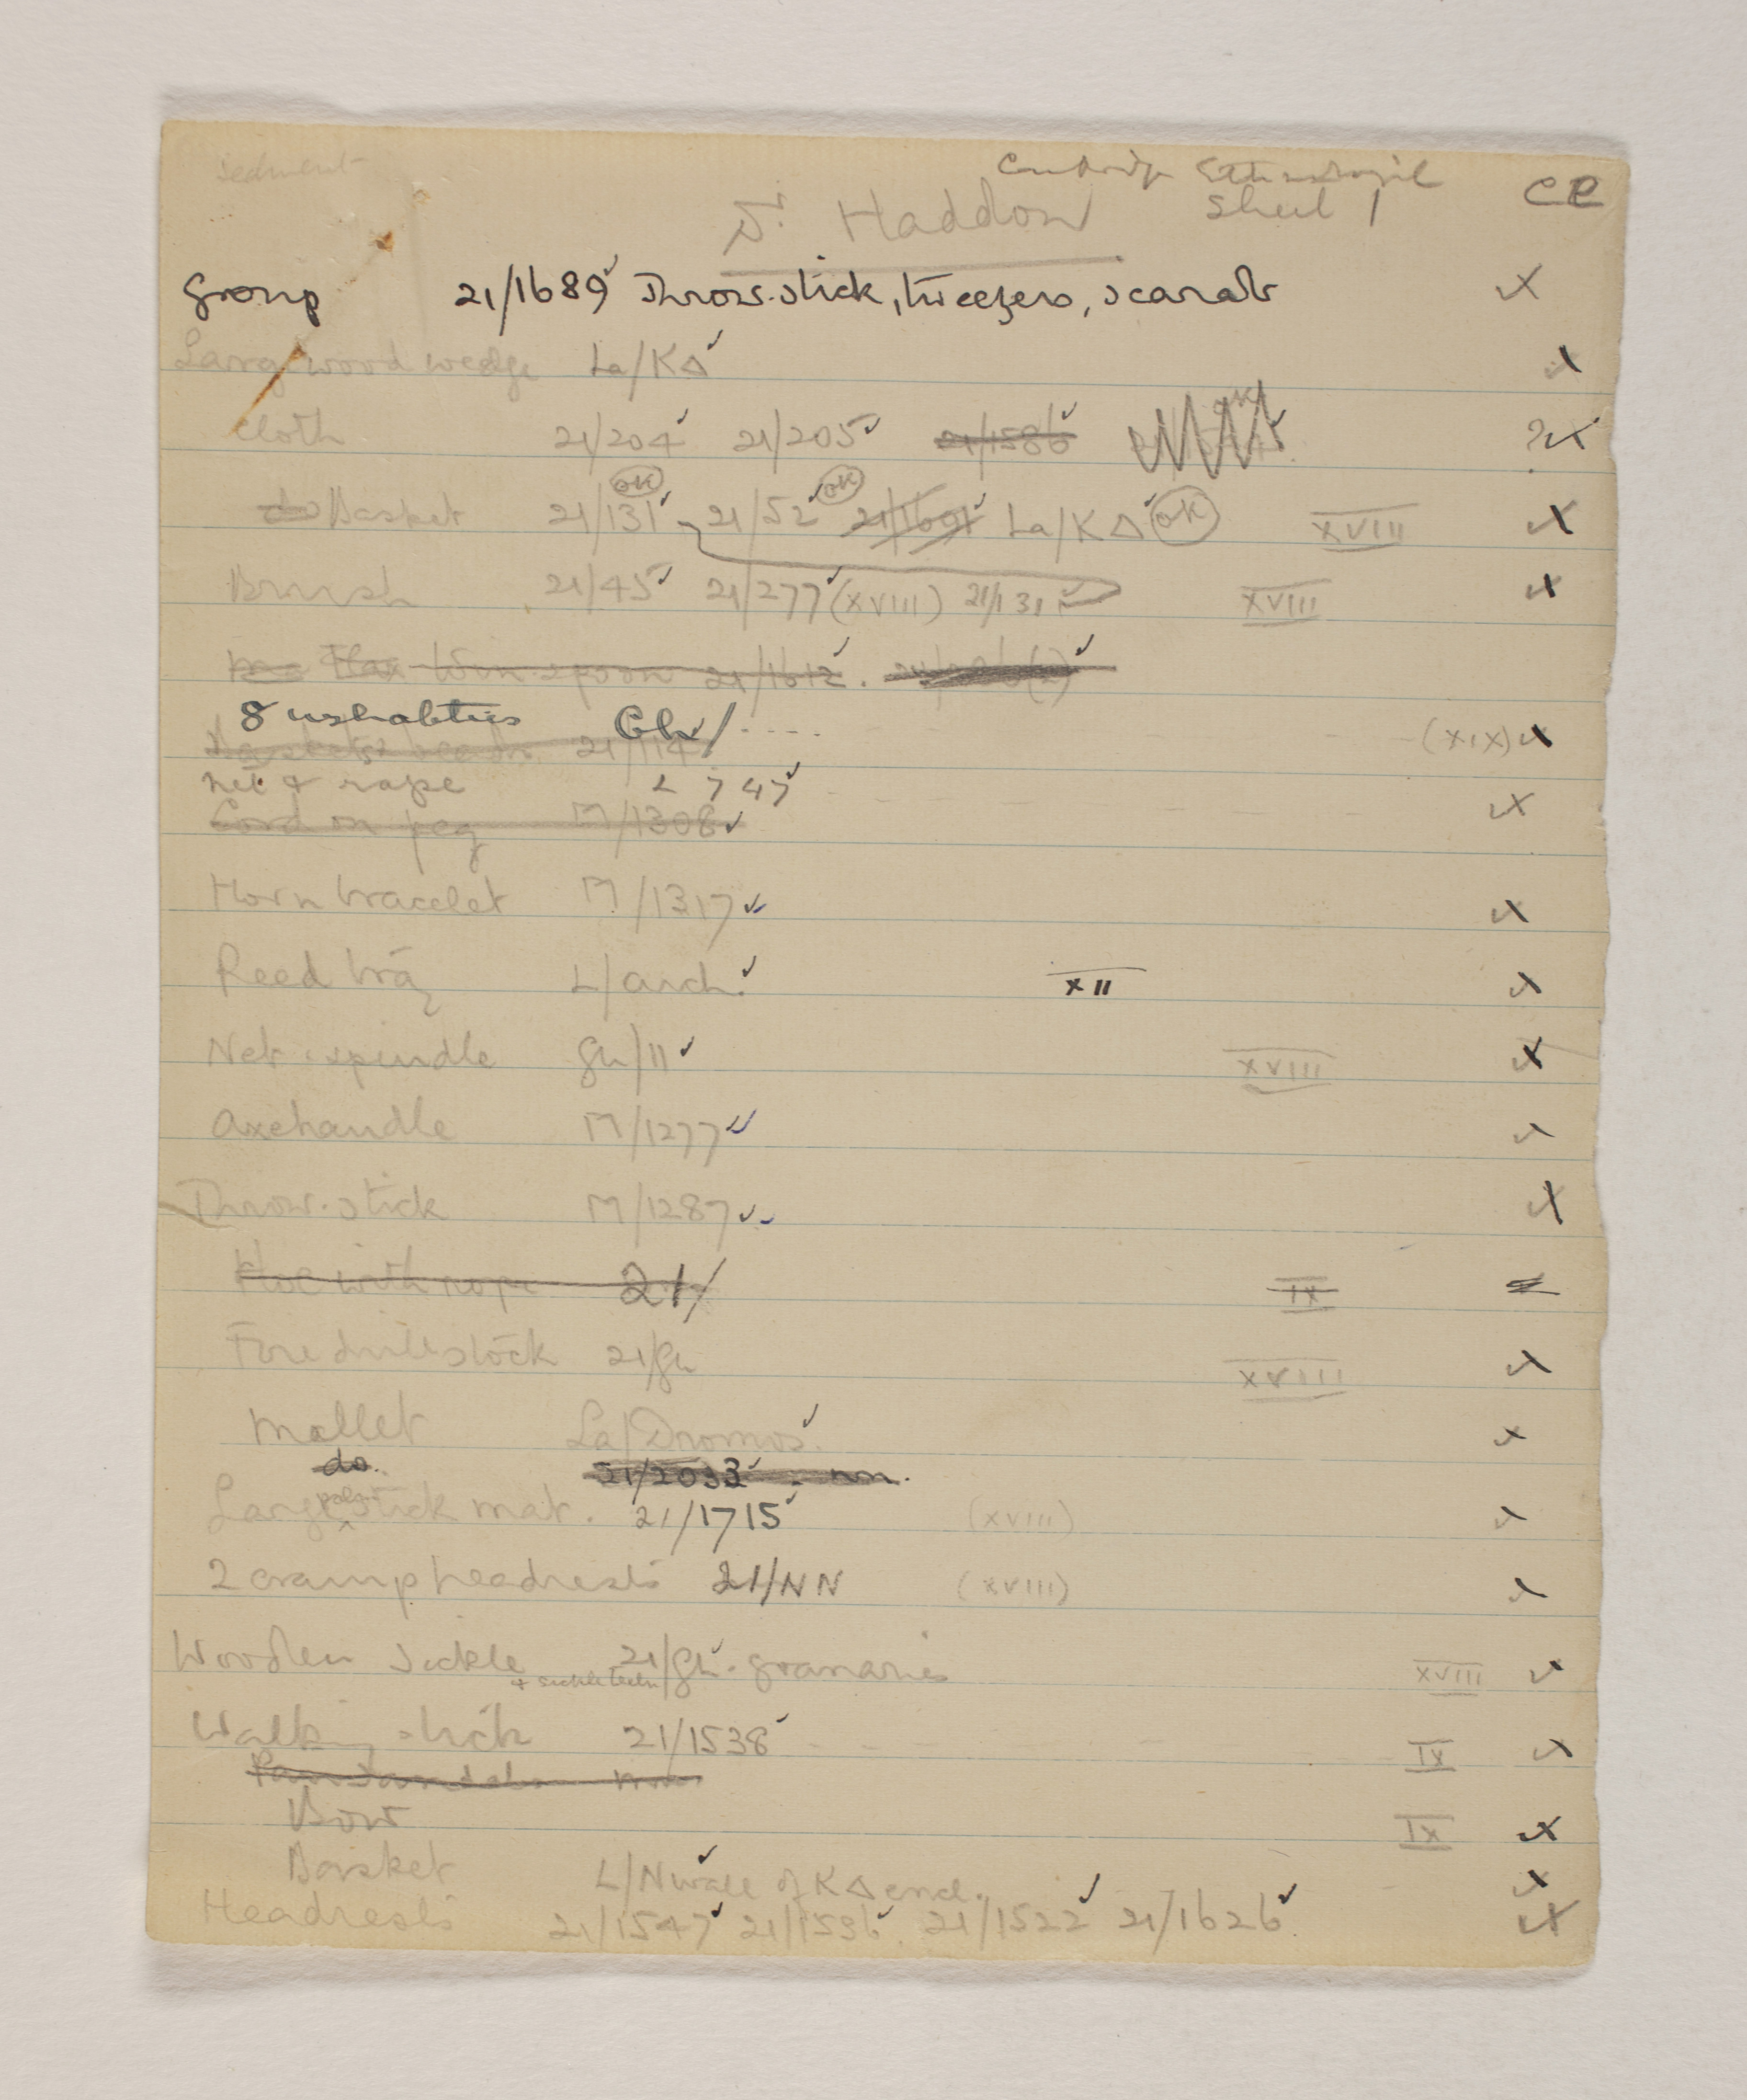 Sedment
Cambridge Ethnological
Dr. Haddon Sheet 1 CR
Group 21/1689 Throw-stick, tweezers, scarab
Large wood wedge La/KΔ
Cloth 21/204 21/205 21/1586 ?
do Basket 21/131 OK 21/52 OK 21/1691 La/KΔ OK XVIII
Brush 21/45 21/277 (XVIII) 21/131 XVIII
Flax spoon 21/1612.
8 ushabtis Gh/ (XIX)
21/114
net & rope L 747
Cord on peg M/1308
Horn bracelet M/1317
Reed bag L/arch. XII
Net spindle Gh/11 XVIII
Axehandle M/1277
Throw-stick M/1287
Hoe with rope 21/ IX
Fire drill stock 21/Gh XVIII
Mallet La/Dromos.
do. 21/2033 nn.
Large palm stick mat. 21/1715 (XVIII)
2 cramp headrests 21/NN (XVIII)
Wooden sickle 21/Gh. granaries XVIII
& sickle teeth
Walking stick 21/1538 IX
Pair Sandals nn
Bow IX
Basket L/N wall of KΔ encl.
Headrests 21/1547 21/1536. 21/1522 21/1626.